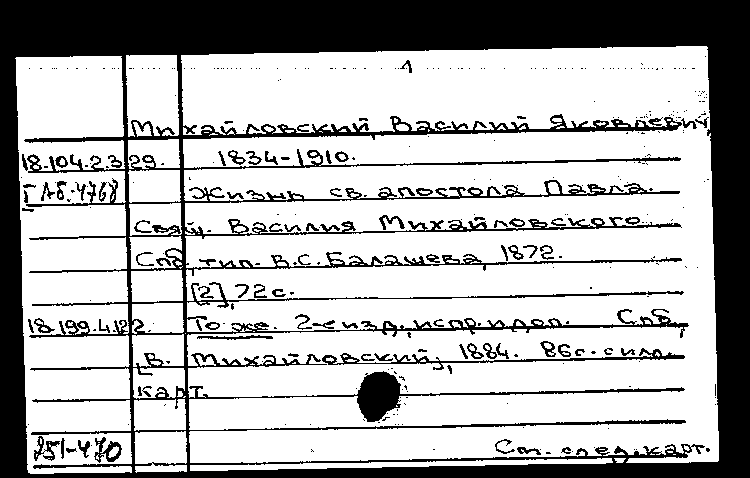 1
Михайловский, Василий Яковлевич,
18.104.2.329. 1834-1910.
ГАб-4768 Жизнь св. апостола Павла.
Свящ. Василия Михайловского
Спб, тип. В.С. Балашева, 1872.
[2], 72 с.
18.199.4.122. То же. 2-е изд., испр. и доп. Спб,
[В. Михайловский], 1884. 86 с. с илл.
карт.
251-470 См. след. карт.